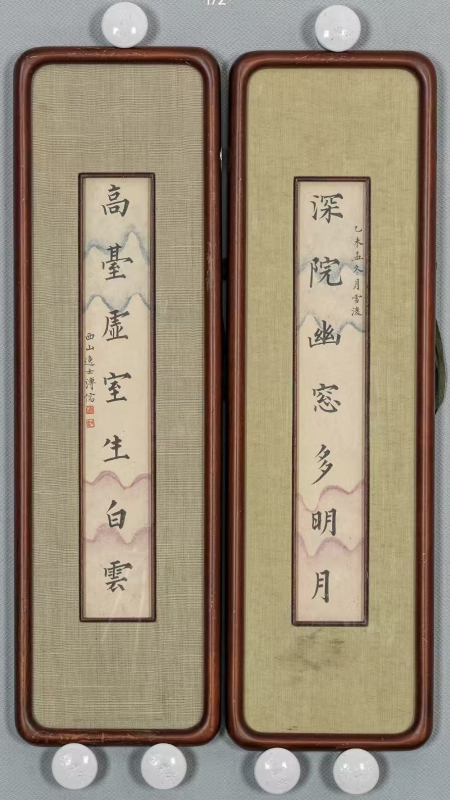 深院幽窓多明月
乙未孟冬月雪後
高臺虛室生白雲
西山逸士溥儒
1/2